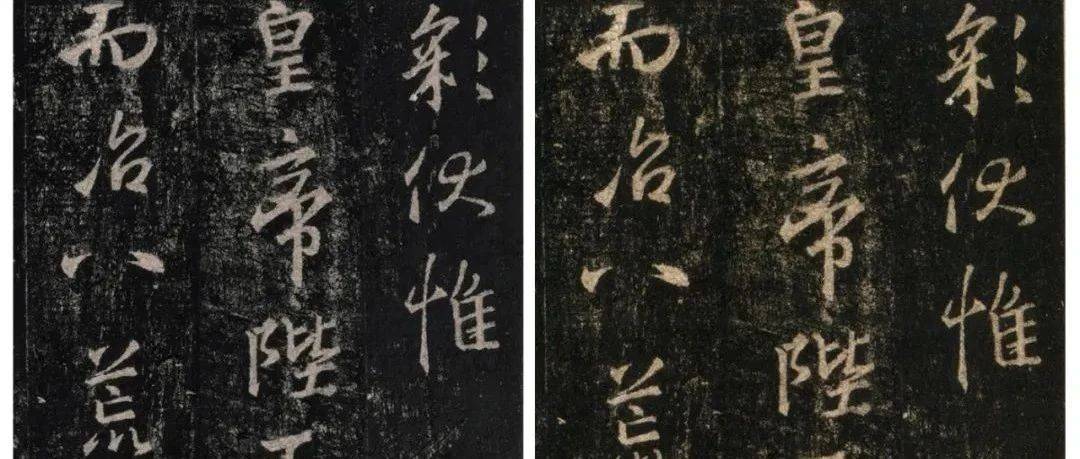 彩伏惟
皇帝陛下
而治八荒
彩伏惟
皇帝陛
而治八荒